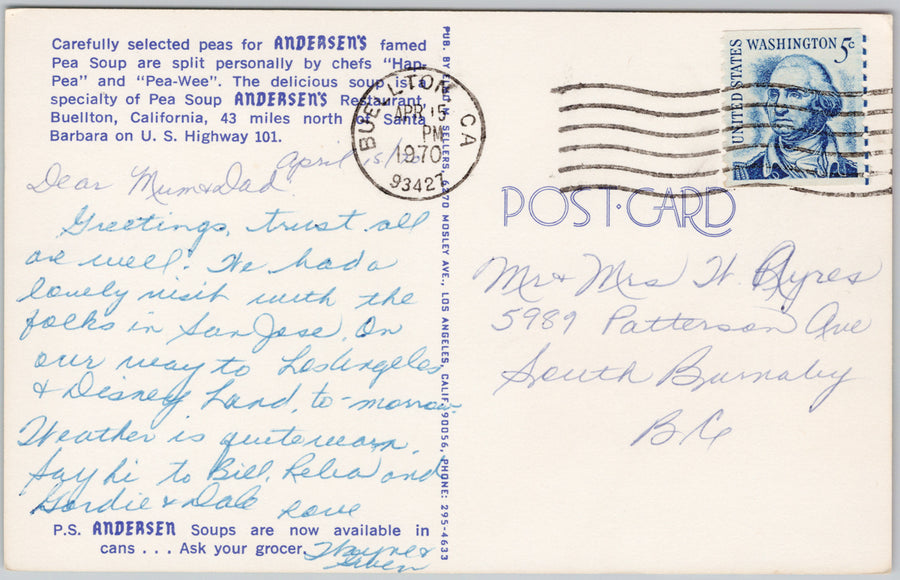 Carefully selected peas for ANDERSEN'S famed
Pea Soup are split personally by chefs "Hap-
Pea" and "Pea-Wee". The delicious soup is a
specialty of Pea Soup ANDERSEN'S Restaurant,
Buellton, California, 43 miles north of Santa
Barbara on U. S. Highway 101.
April 15/
Dear Mum & Dad
Greetings, trust all
are well. We had a
lovely visit with the
folks in San Jose. On
our way to Los Angeles
& Disney Land, to-morrow.
Weather is quite warm.
Say hi to Bill, and
Gordie & Dale Love
Wayne &
P.S. ANDERSEN Soups are now available in
cans . . . Ask your grocer.
PUB. BY M. SELLERS, 6370 MOSLEY AVE., LOS ANGELES, CALIF. 90056, PHONE: 295-4633
BUELLTON, CA
APR 15
PM
1970
93427
UNITED STATES
WASHINGTON 5c
POST·CARD
Mr & Mrs W Ayres
5989 Patterson Ave
South Burnaby
BC